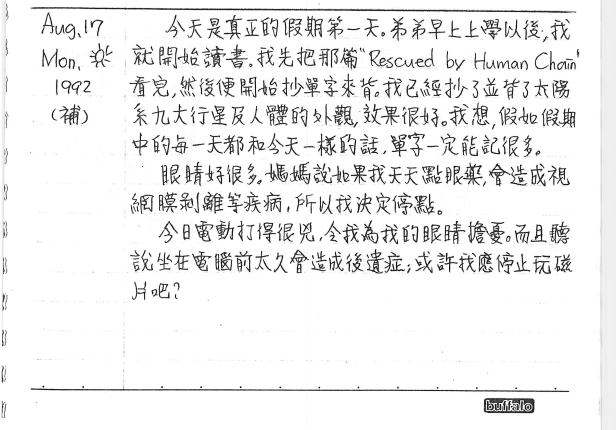 Aug.17
Mon.
1992
(補)
今天是真正的假期第一天。弟弟早上上學以後,我
就開始讀書。我先把那篇"Rescued by Human Chain"
看完,然後便開始抄單字來背。我已經抄了並背了太陽
系九大行星及人體的外觀,效果很好。我想,假如假期
中的每一天都和今天一樣的話,單字一定能記很多。
眼睛好很多。媽媽說如果我天天點眼藥,會造成視
網膜剥離等疾病,所以我決定停點。
今日電動打得很兇,令我為我的眼睛擔憂。而且聽
說坐在電腦前太久會造成後遺症;或許我應停止玩磁
片吧?
buffalo